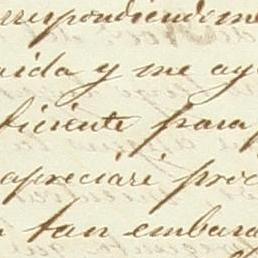 rrespondiendome
aida y me ay
ficiente para
apreciaré pro
tan embara